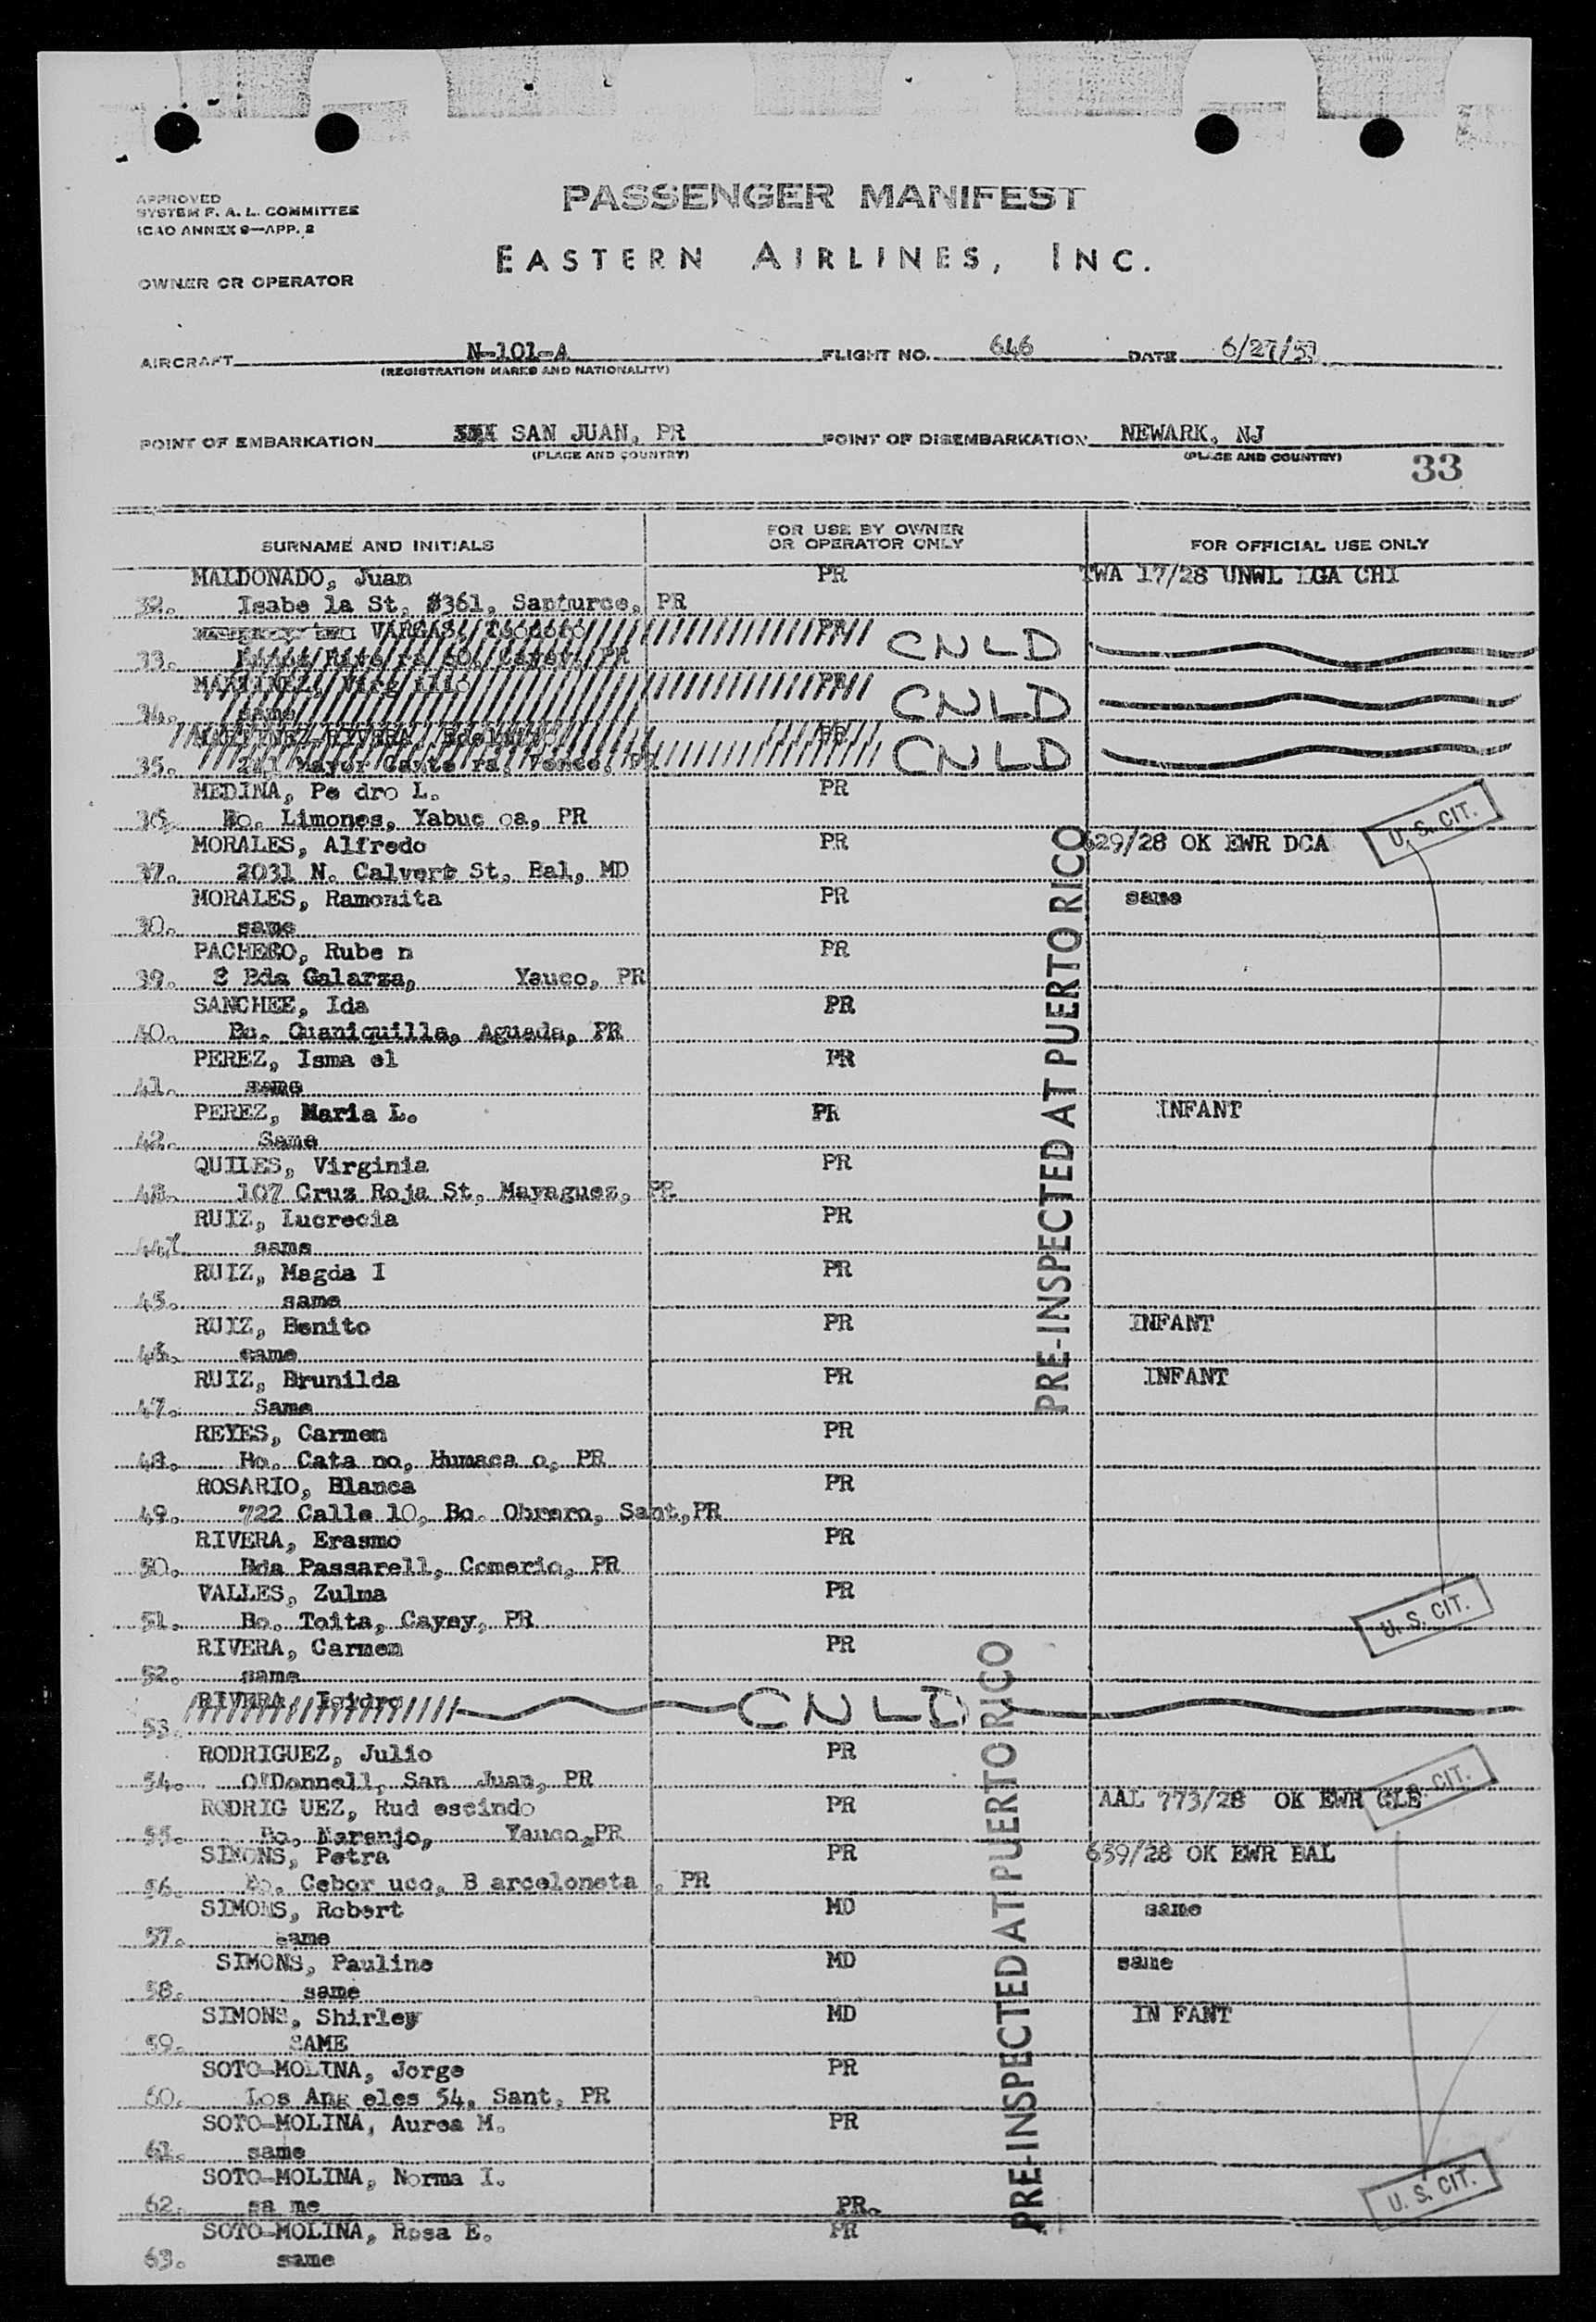 APPROVED
SYSTEM F. A. L. COMMITTEE
ICAO ANNEX 9—APP. 2
OWNER OR OPERATOR
PASSENGER MANIFEST
EASTERN AIRLINES, INC.
AIRCRAFT N-101-A FLIGHT NO. 646 DATE 6/27/57
(REGISTRATION MARKS AND NATIONALITY)
POINT OF EMBARKATION SAN JUAN, PR POINT OF DISEMBARKATION NEWARK, NJ
(PLACE AND COUNTRY) (PLACE AND COUNTRY)
33
SURNAME AND INITIALS FOR USE BY OWNER OR OPERATOR ONLY FOR OFFICIAL USE ONLY
MALDONADO, Juan PR TWA 17/28 UNWL LGA CHI
32. Isabe la St, #361, Santurce, PR
VARGAS, Teodoro PR CNLD
33. Cayey, PR
MARTINEZ, Virgilio PR CNLD
34. same
MARTINEZ-RIVERA, PR CNLD
35. Mayor Cante ra, Ponce, PR
MEDINA, Pe dro L. PR
36. Bo. Limones, Yabuc oa, PR
U. S. CIT.
MORALES, Alfredo PR 629/28 OK EWR DCA
37. 2031 N. Calvert St, Bal, MD
MORALES, Ramonita PR same
30. same
PACHECO, Rube n PR
39. 8 Bda Galarza, Yauco, PR
SANCHEE, Ida PR
40. Bo. Guaniquilla, Aguada, PR
PEREZ, Isma el PR
41. same
PEREZ, Maria L. PR INFANT
42. Same
QUILES, Virginia PR
43. 107 Cruz Roja St, Mayaguez, PR
RUIZ, Lucrecia PR
44. same
RUIZ, Magda I PR
45. same
RUIZ, Benito PR INFANT
46. same
RUIZ, Brunilda PR INFANT
47. Same
PRE-INSPECTED AT PUERTO RICO
REYES, Carmen PR
48. Bo. Cata no, Humaca o, PR
ROSARIO, Blanca PR
49. 722 Calle 10, Bo. Obrero, Sant,PR
RIVERA, Erasmo PR
50. Bda Passarell, Comerio, PR
VALLES, Zulma PR
51. Bo. Toita, Cayey, PR
U. S. CIT.
RIVERA, Carmen PR
52. same
RIVERA, Isidro CNLD
53.
RODRIGUEZ, Julio PR
54. O'Donnell, San Juan, PR
U. S. CIT.
RODRIG UEZ, Rud escindo PR AAL 773/28 OK EWR CLE
55. Bo. Naranjo, Yauco,PR
SIMONS, Petra PR 659/28 OK EWR BAL
56. Bo. Cebor uco, B arceloneta , PR
SIMONS, Robert MD same
57. same
SIMONS, Pauline MD same
58. same
SIMONS, Shirley MD IN FANT
59. SAME
SOTO-MOLINA, Jorge PR
60. Los Ang eles 54, Sant, PR
SOTO-MOLINA, Aurea M. PR
61. same
SOTO-MOLINA, Norma I.
62. sa me PR.
U. S. CIT.
PRE-INSPECTED AT PUERTO RICO
SOTO-MOLINA, Rosa E. PR
63. same